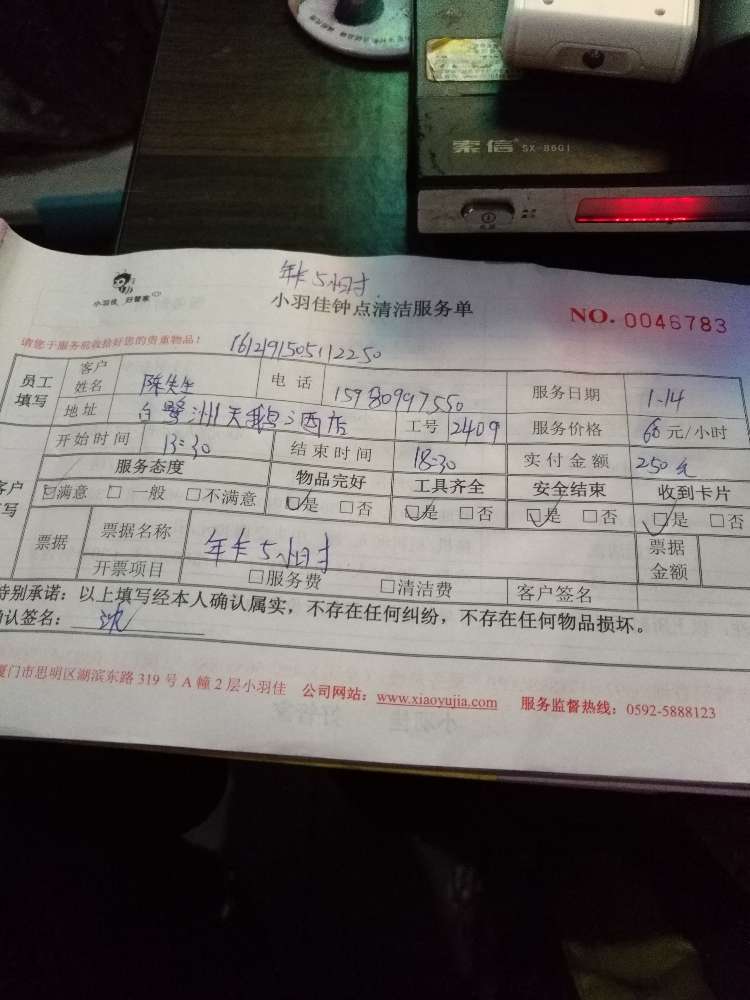 索信 SX-86GI
年卡5小时
小羽佳 好管家
小羽佳钟点清洁服务单
NO. 0046783
请您于服务前收拾好您的贵重物品！
1612191505112250
员工填写 客户姓名 陈先生 电话 15980997550 服务日期 1.14
地址 白鹭洲天鹅酒店 工号 2409 服务价格 60元/小时
开始时间 13:30 结束时间 18:30 实付金额 250元
服务态度 物品完好 工具齐全 安全结束 收到卡片
☑满意 □一般 □不满意 ☑是 □否 ☑是 □否 ☑是 □否 ☑是 □否
票据 票据名称 年卡5小时 票据金额
开票项目 □服务费 □清洁费 客户签名
特别承诺：以上填写经本人确认属实，不存在任何纠纷，不存在任何物品损坏。
确认签名： 沈
厦门市思明区湖滨东路 319 号 A 幢 2 层小羽佳 公司网站：www.xiaoyujia.com 服务监督热线：0592-5888123